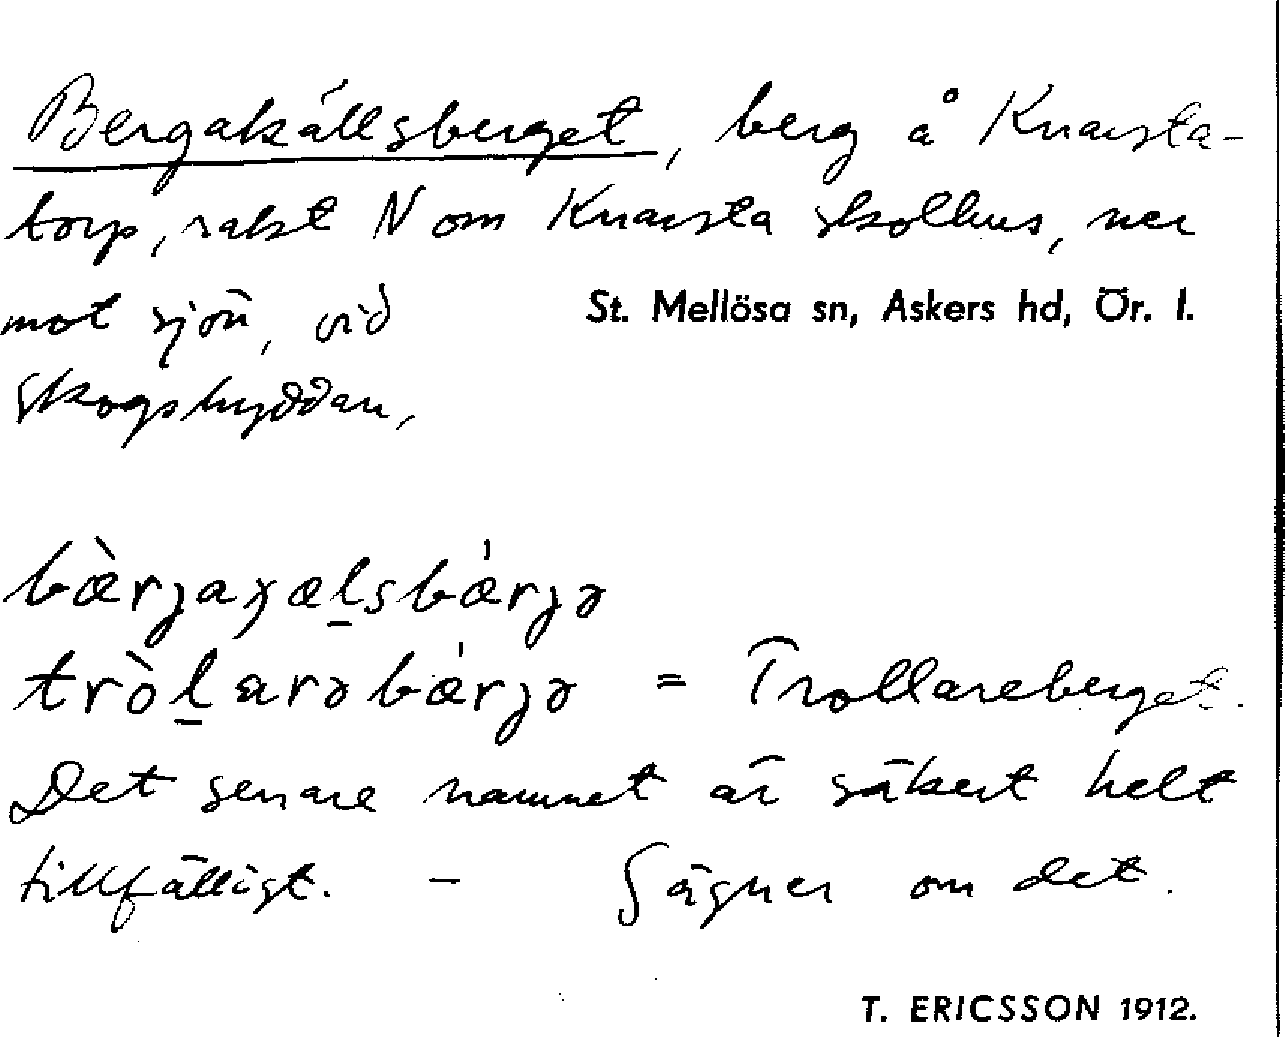 Bergakällsberget, berg å Knarsta-
torp, rakt N om Knarsta skolhus, ner
mot sjön, vid St. Mellösa sn, Askers hd, Ör. l.
skogshyddan,
bæ̀rjaχæl̠sbǽrjə
tròl̠arəbǽrjə = Trollareberget.
Det senare namnet är säkert helt
tillfälligt. – Sägner om det.
T. ERICSSON 1912.